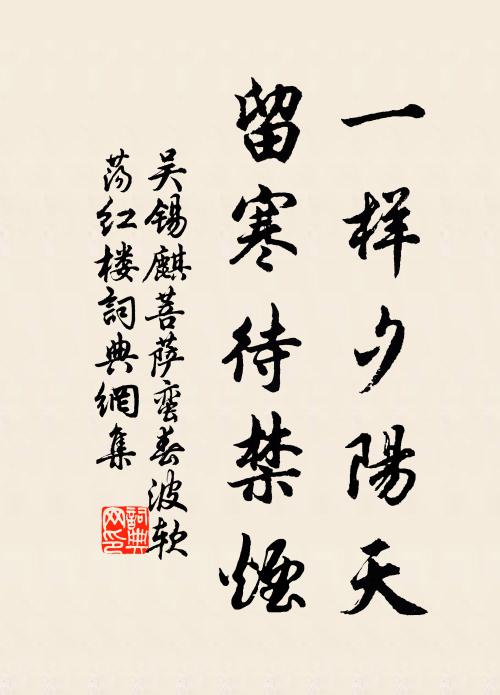 一样夕陽天
留寒待禁煙
吴锡麒菩萨蛮春波软
荡红楼詞典網集
詞典
网印